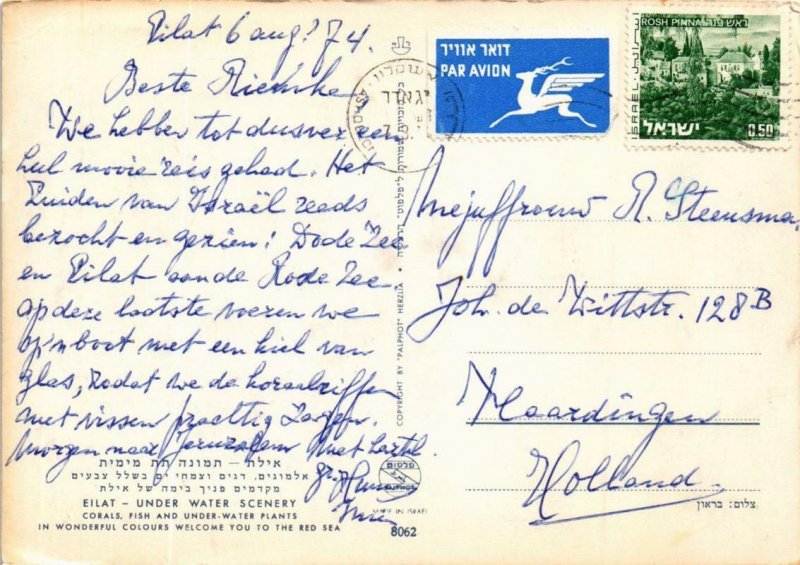 Eilat 6 aug? 74.
Beste Riemke
We hebben tot dusver een
heel mooie reis gehad. Het
Zuiden van Israël reeds
bezocht en gezien! Dode Zee
en Eilat aan de Rode Zee
op deze laatste voeren we
op 'n boot met een kiel van
glas, zodat we de koraalriffen
met vissen prachtig zagen.
Morgen naar Jeruzalem Met hartel.
gr.
אילת – תמונה תת מימית
אלמוגים, דגים וצמחי ים בשלל צבעים
מקדמים פניך בימה של אילת
EILAT – UNDER WATER SCENERY
CORALS, FISH AND UNDER-WATER PLANTS
IN WONDERFUL COLOURS WELCOME YOU TO THE RED SEA
פלפוט
PALPHOT
MADE IN ISRAEL
8062
COPYRIGHT BY "PALPHOT" HERZLIA
כל הזכויות שמורות ל"פלפוט" הרצליה
דואר אוויר
PAR AVION
ROSH PINNA ראש פנה
ISRAEL
ישראל
0.50
Mejuffrouw R. Steensma.
Joh. de Wittstr. 128B
Vlaardingen
Holland.
צלום: בראון